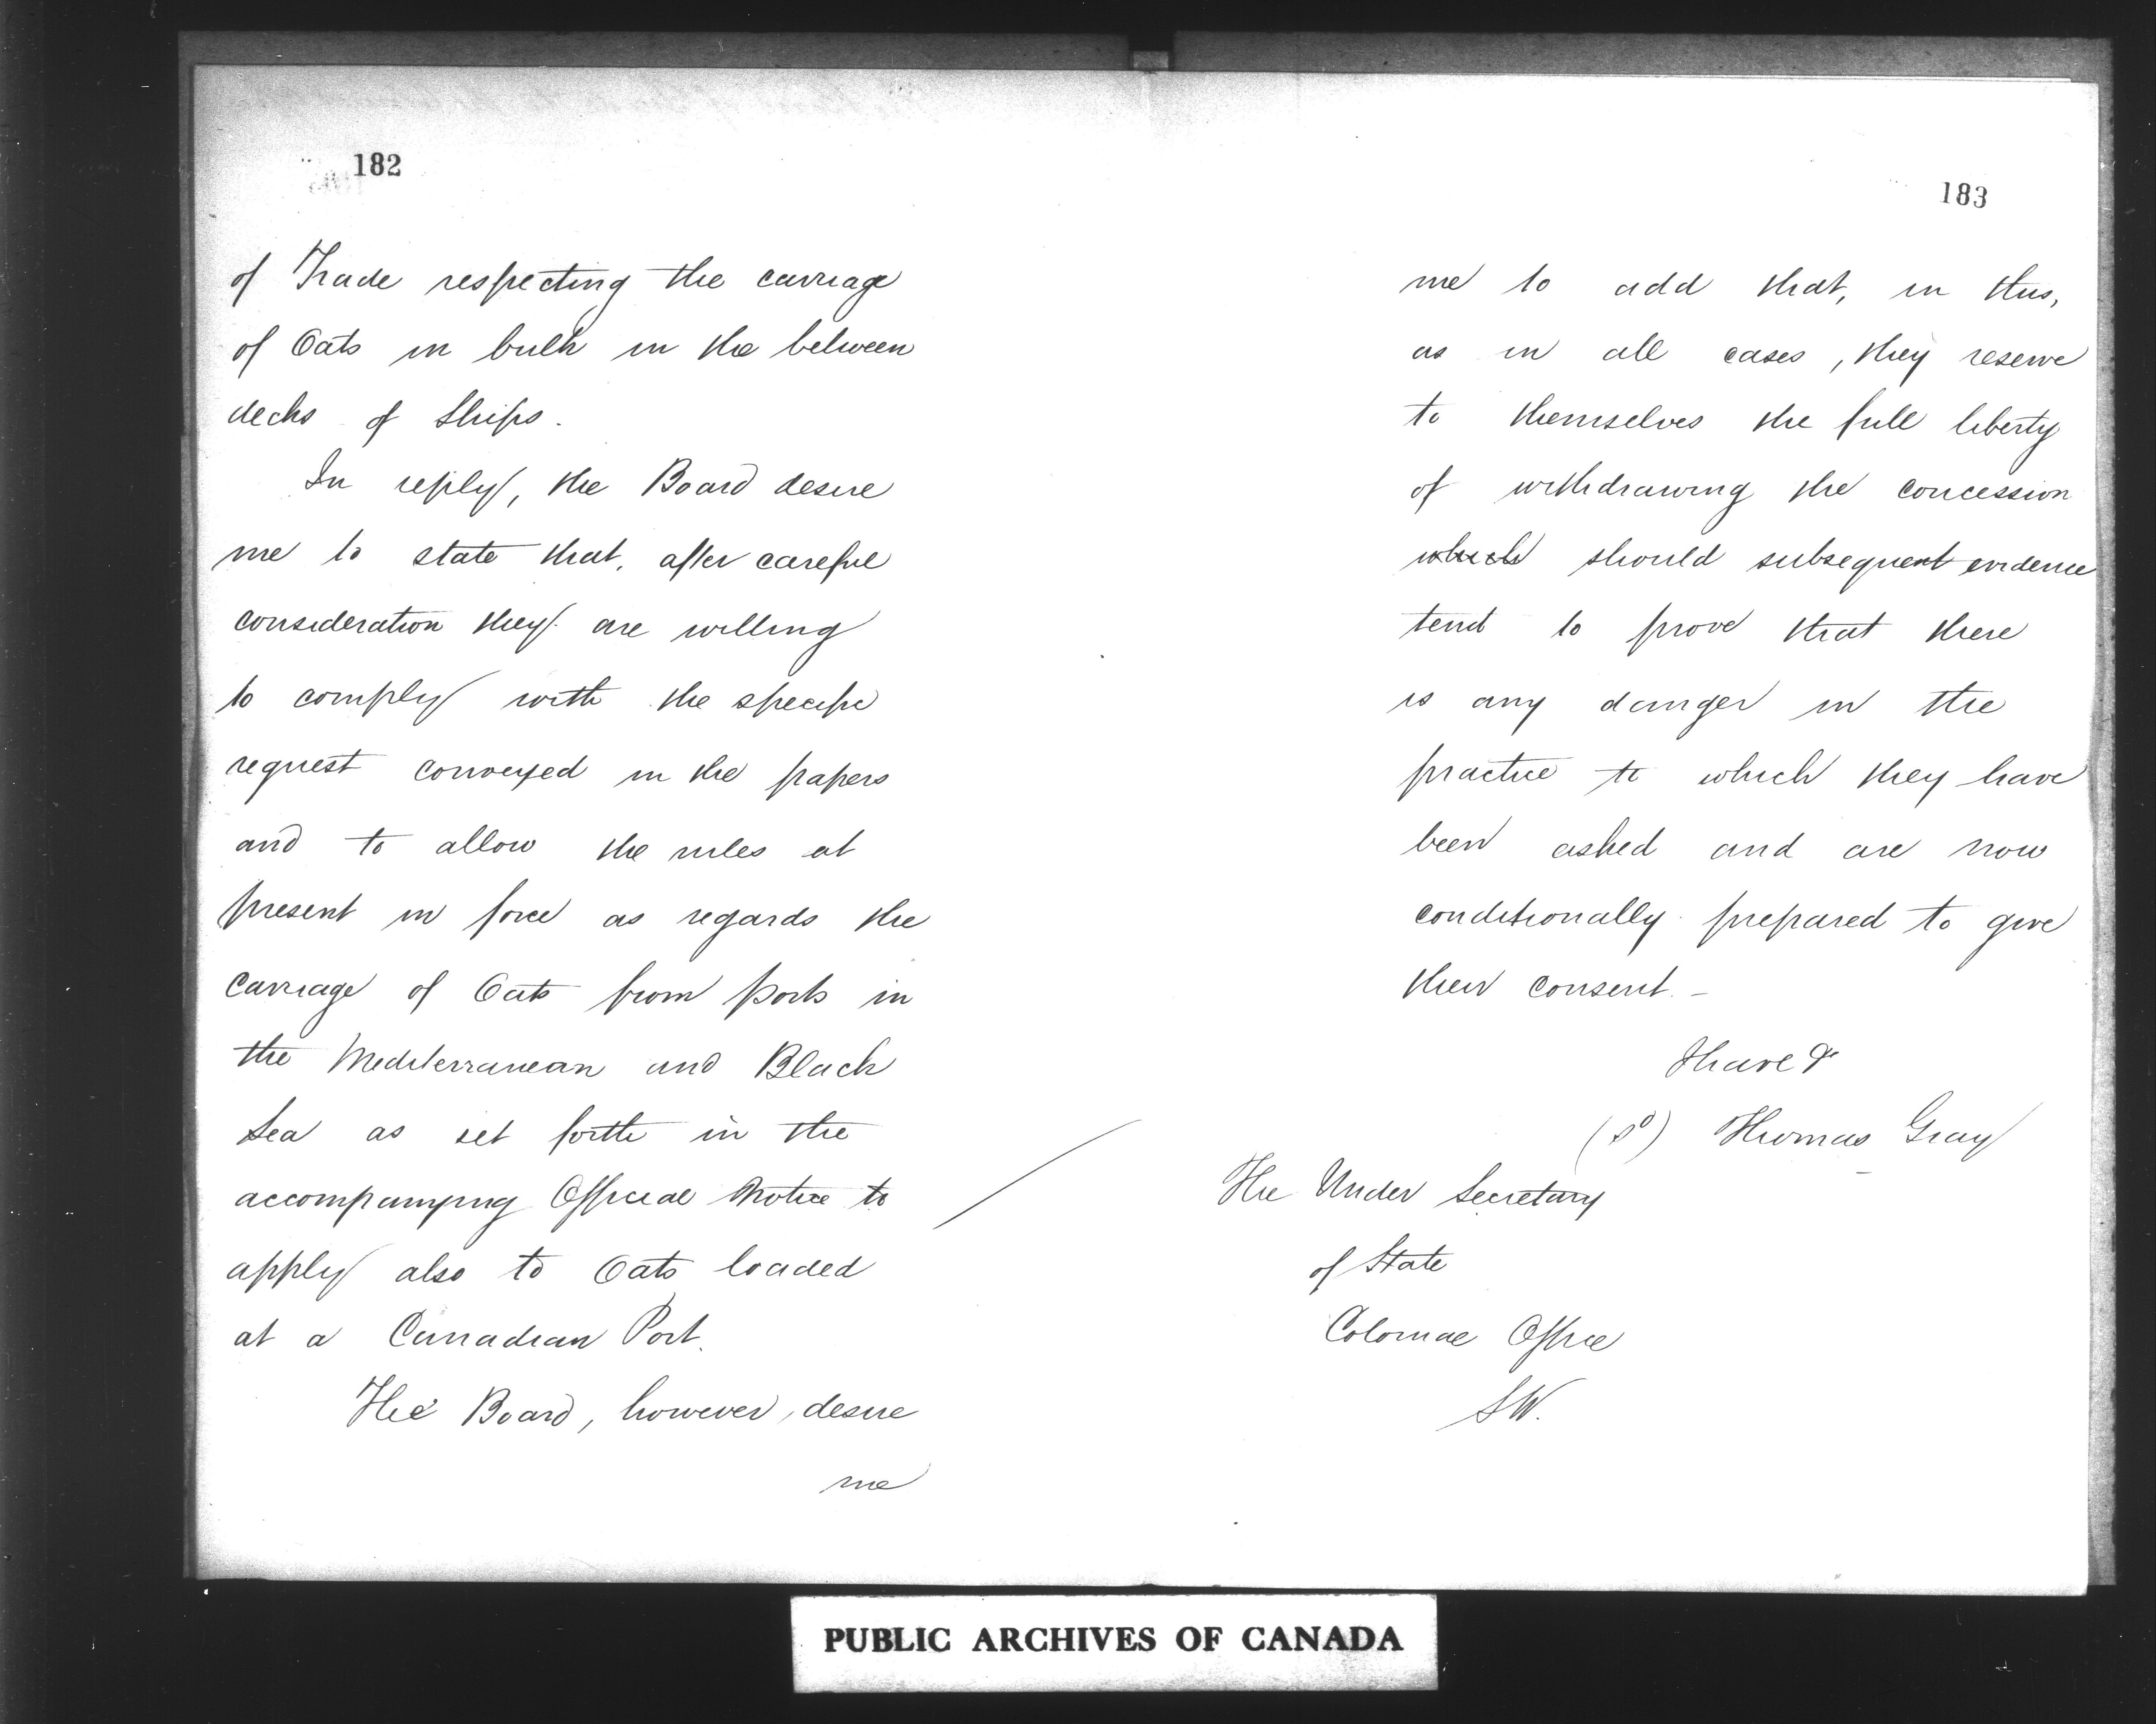 182
of Trade respecting the carriage
of Oats in bulk in the between
decks of Ships.
In reply, the Board desire
me to state that, after careful
consideration they are willing
to comply with the specific
request conveyed in the papers
and to allow the rules at
present in force as regards the
carriage of Oats from ports in
the Mediterranean and Black
Sea as set forth in the
accompanying Official Notice to
apply also to Oats loaded
at a Canadian Port.
The Board, however, desire
me
183
me to add that, in this,
as in all cases, they reserve
to themselves the full liberty
of withdrawing the concession
which should subsequent evidence
tend to prove that there
is any danger in the
practice to which they have
been asked and are now
conditionally prepared to give
their consent. -
I have &c
(Sd) Thomas Gray
The Under Secretary
of State
Colonial Office
S.W.
PUBLIC ARCHIVES OF CANADA